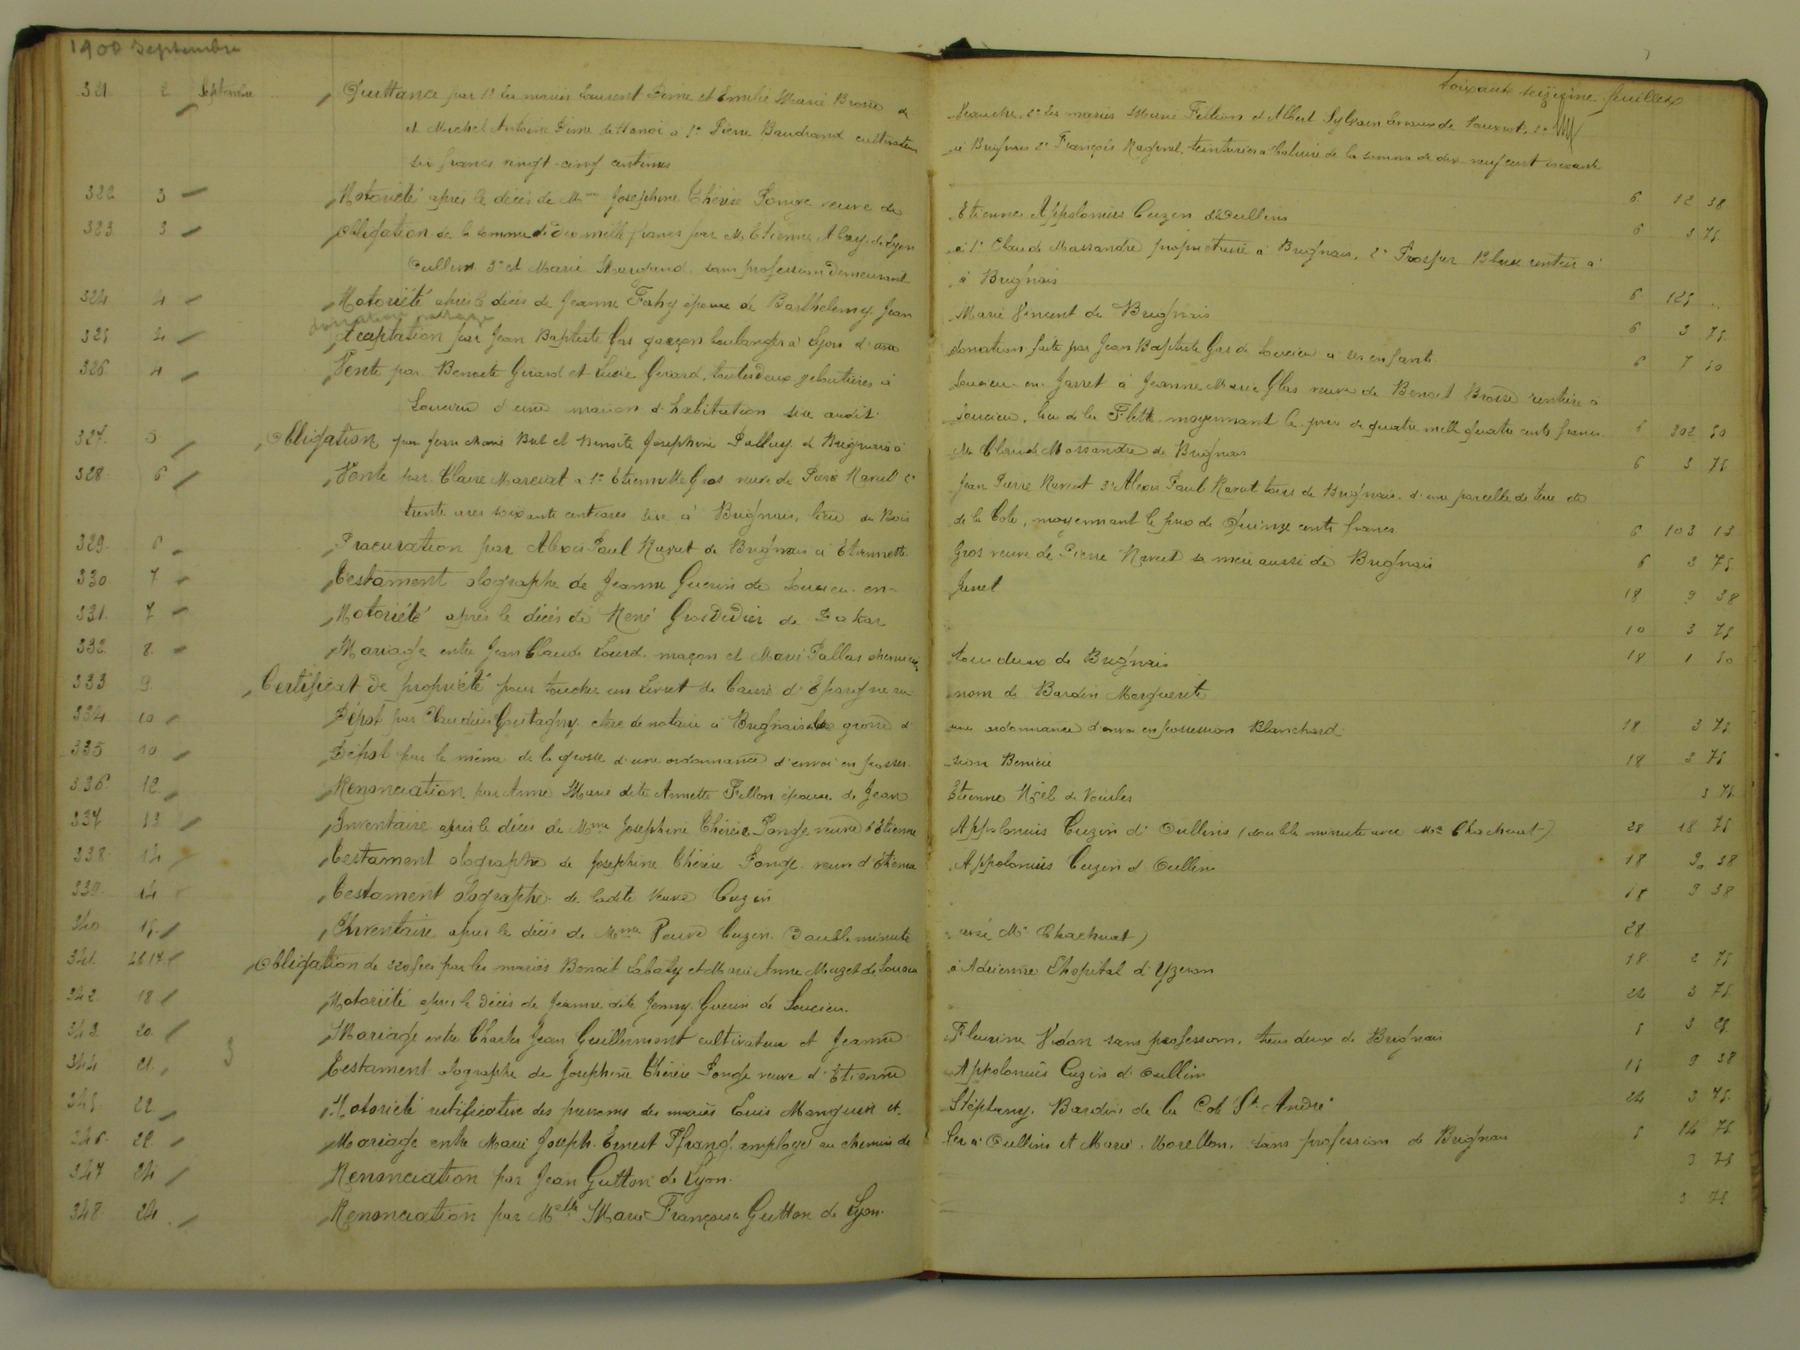 1900 Septembre
Soixante seizième feuillet
321 2 Septembre Quittance par 1° les mariés Laurent Dime et Emilie Marie Brosse de Neauche, 2° les mariés Marie Fillion et Albert Sylvain
et Michel Antoine Dime de Hanoi a 1° Pierre Baudrand cultivateur à Brignais 2° François Ragenel, teinturier à Caluire de la somme de dix neuf cent soixante
six francs vingt-cinq centimes 6 12 38
322 3 Notoriété après le décès de Mme Joséphine Thérèse Ponge veuve de Etienne Appolonius Cuzin d'Oullins 6 3 75
323 3 Obligation de la somme de dix mille francs par M. Etienne de Lyon à 1° Claude Massandre propriétaire à Brignais, 2° Prosper Blanc rentier à
Oullins 3° et Marie sans profession demeurant à Brignais 6 125
324 4 Notoriété après le décès de Jeanne Fahy épouse de Barthelemy Jean Marie Vincent de Brignais 6 3 75
donation partage
325 4 Acceptation par Jean Baptiste Gas garçon boulanger à Lyon d'une donation faite par Jean Baptiste Gas de Soucieu à ses enfants 6 7 50
326 4 Vente par Benoite Girard et Lucie Girard, toutes deux giletières à Soucieu-en-Jarret à Jeanne Marie Glas veuve de Benoit Brosse rentière à
Soucieu d'une maison d'habitation sise audit Soucieu, lieu de la moyennant le prix de quatre mille quatre cents francs 6 302 50
327 5 Obligation par Jean Marie Bret et Benoite Joséphine Pallay de Brignais à M. Claude Massandre de Brignais 6 3 75
328 6 Vente par Claire Marcuat a 1° Etiennette Gros veuve de Pierre Ravat 2° Jean Pierre Ravat 3° Alexis Paul Ravat tous de Brignais d'une parcelle de terre de
trente ares soixante centiares sise à Brignais, lieu du Bois de la Cote, moyennant le prix de Quinze cents francs 6 103 13
329 6 Procuration par Alexis Paul Ravat de Brignais à Etiennette Gros veuve de Pierre Ravat sa mère aussi de Brignais 6 3 75
330 7 Testament olographe de Jeanne Guerin de Soucieu-en-Jarret 18 9 38
331 7 Notoriété après le décès de René Gros Didier de Dakar 10 3 75
332 8 Mariage entre Jean Claude Lourd maçon et Marie Pallas tous deux de Brignais 18 1 50
333 9 Certificat de propriété pour toucher un Livret de Caisse d'Epargne au nom de Bardin Marguerite
334 10 Dépôt par Claudius Gastagny clerc de notaire à Brignais de la grosse d'une ordonnance d'envoi en possession Blanchard 18 3 75
335 10 Dépôt par le même de la grosse d'une ordonnance d'envoi en possession 18 3 75
336 12 Renonciation par Anne Marie dite Annette Fillon épouse de Jean Etienne Noël de Vourles 3 75
337 13 Inventaire après le décès de Mme Joséphine Thérèse Ponge veuve d'Etienne Appolonius Cuzin d'Oullins (double minute avec Me Chachuat) 28 18 75
338 14 Testament olographe de Joséphine Thérèse Ponge veuve d'Etienne Appolonius Cuzin d'Oullins 18 9 38
339 14 Testament olographe de ladite Veuve Cuzin 18 9 38
340 15 Inventaire après le décès de Mme Veuve Cuzin (Double minute avec Me Chachuat) 28
341 16 17 Obligation de 320 frcs par les mariés Benoit Labaty et Marie Anne Muzet de Soucieu à Adrienne Lhopital d'Yzeron 18 2 75
342 18 Notoriété après le décès de Jeanne dite Jenny Guerin de Soucieu 24 3 75
343 20 Mariage entre Charles Jean Guillermont cultivateur et Jeanne Fleurine Vidon sans profession, tous deux de Brignais 5 3 25
344 21 Testament olographe de Joséphine Thérèse Ponge veuve d'Etienne Appolonius Cuzin d'Oullins 15 9 38
3
345 22 Notoriété rectificative des prenoms des mariés Louis Manguin et Stéphany Bardin de la Cote St-André 24 3 75
346 22 Mariage entre Marie Joseph Ernest Pfrang employé au chemin de fer à Oullins et Marie Morellon, sans profession de Brignais 5 14 75
347 24 Renonciation par Jean Gutton de Lyon 3 75
348 24 Renonciation par Mlle Marie Françoise Gutton de Lyon 3 75